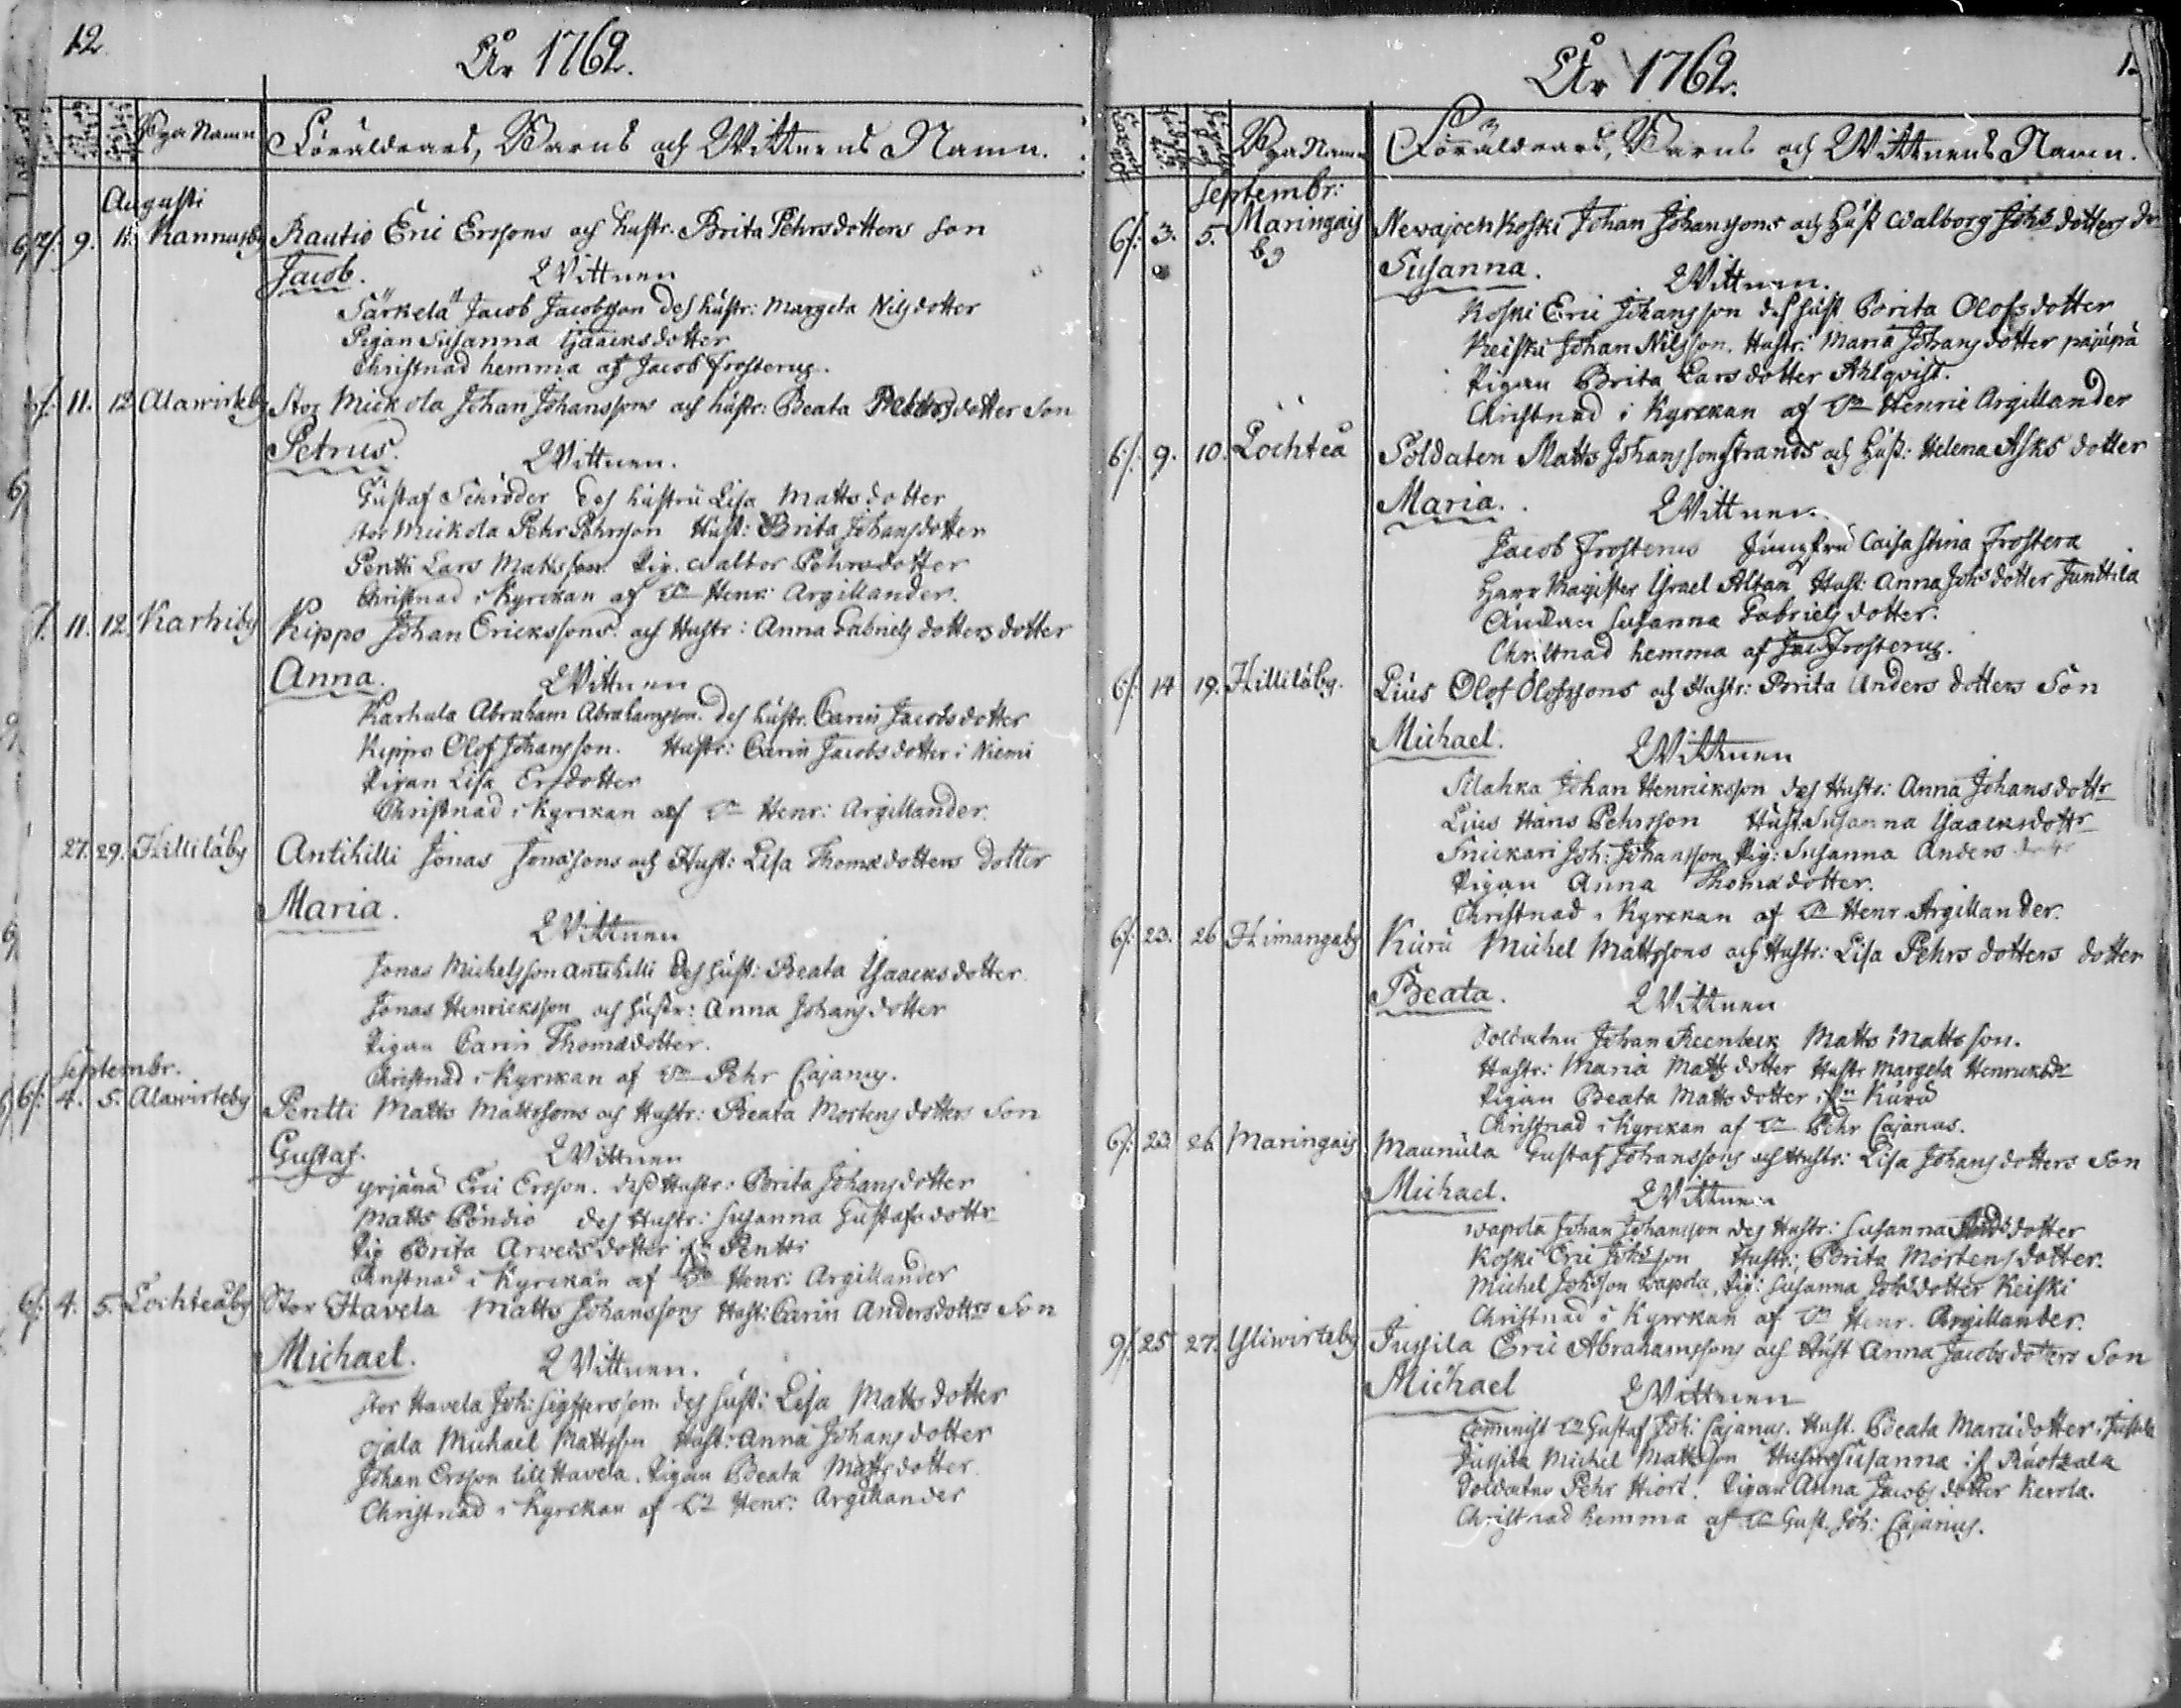 12
År 1762.
Bya Namn Föräldrars, Barns och Wittnens Namn.
Augusti
9. 11. Kannusby Rautio Eric Ersons och hustr. Brita Pehrsdotters Son
Jacob. Wittnen
Särkelä Jacob Jacobsson des hustr: Margeta Nilsdotter
Pigan Susanna Isaacksdotter
Christnad hemma af Jacob Frosterus.
11. 12 Alawirteby Stor Mickola Johan Johanssons och hustr: Beata dotter Son
Petrus. Wittnen.
Gustaf Schröder des hustru Lisa Mattsdotter
stor Mickola Pehr Pehrsson Hust: Brita Johansdotter
Pentti Lars Mattsson Pig. Walbor Pehrsdotter
Christnad i Kyrckan af Dn Henr: Argillander.
11. 12. Karhiby Kippo Johan Erickssons och Hustr: Anna Gabriels dotters dotter
Anna. Wittnen
Karhula Abraham Abrahamsson des hustr. Carin Jacobsdotter
Kippo Olof Johansson. Hustr: Carin Jacobsdotter i Niemi
Pigan Lisa Ersdotter
Christnad i Kyrckan af Dn Henr: Argillander.
27. 29. Hilliläby Antihilli Jonas Jonæsons och Hust: Lisa Thomædotters dotter
Maria. Wittnen
Jonas Michelsson Antihilli des hust: Beata Isaacksdotter
Jonas Henricksson och hustr: Anna Johansdotter
Pigan Carin Thomædotter.
Christnad i Kyrckan af Dn Pehr Cajanus.
Septembr.
6/: 4. 5. Alawirteby Pentti Matts Mattssons och Hustr: Beata Mortens dotters Son
Gustaf. Wittnen
Yrjänä Eric Ersson. des Hustr: Brita Johansdotter
Matts Pöndiö des Hustr: Susanna Gustafsdottr
Pig Brita Arvedsdotter Pentti
Christnad i Kyrckan af Dn Henr: Argillander
6/: 4. 5. Lochteåby Stor Havela Matts Johanssons Hust: Carin Andersdotters Son
Michael. Wittnen.
stor Havela Joh: Sigfersson des hust: Lisa Mattsdotter
Ojala Michael Mattsson Hust: Anna Johansdotter
Johan Ersson lill Havela. Pigan Beata Mattsdotter.
Christnad i Kyrckan af Dn Henr: Argillander
År 1762.
Bya Namn Föräldrars, Barns och Wittnens Namn.
Septembr:
6/: 3. 5. Maringais by Newajochkoski Johan Johanssons och Hust Walborg Johsdotters
Susanna. Wittnen.
Koski Eric Johansson des hust Brita Olofsdotter
Keiski Johan Nilsson. Hustr: Maria Johansdotter
Pigan Brita Larsdotter Ahlqvist.
Christnad i Kyrckan af Dn Henric Argillander
6/: 9. 10. Lochteå Soldaten Matts Johanssons Strands och Hust: Helena Asks dotter
Maria. Wittnen
Jacob Frosterus Jungfru Caisa Stina Frostera
Herr Magister Israel Altan Hust: Anna Johsdotter Junttila
Änckan Susanna Gabrielsdotter.
Christnad hemma af Jac Frosterus.
6/: 14 19. Hilliläby. Lius Olof Olofssons och Hustr: Brita Anders dotters Son
Michael. Wittnen
Silahka Johan Henricksson des Hustr: Anna Johansdottr
Lius Hans Pehrsson Hust. Susanna Isaacksdottr
Snickari Joh: Johansson Pig: Susanna Anders dottr
Pigan Anna Thomædotter.
Christnad i Kyrckan af Dn Henr. Argillander.
6/: 23. 26 Himangaby Kuru Michel Mattssons och Hustr: Lisa Pehrsdotters dotter
Beata. Wittnen
Soldaten Johan Reenbeck Matts Mattsson.
Hustr: Maria Mattsdotter Hustr Margeta Henricksdr
Pigan Beata Mattsdotter Kuru
Christnad i Kyrckan af Dn Pehr Cajanus.
6/: 23 26 Maringais Maunula Gustaf Johanssons och Hustr: Lisa Johansdotters Son
Michael. Wittnen
Wapola Johan Johansson des Hustr: Susanna dotter
Koski Eric Johsson Hustr: Brita Mörtensdotter.
Michel Johsson Wapola, Pig: Susanna Johsdotter Keiski
Christnad i Kyrckan af Dn Henr. Argillander.
9/: 25 27. Yliwirteby Jussila Eric Abrahamssons och Hust Anna Jacobsdotters Son
Michael Wittnen
Comminist Dn Gustaf Joh: Cajanus. Hust. Beata Maridotter Jussila
Jussila Michel Mattsson Susanna Ruotzala
Soldaten Pehr Hiort. Pigan Anna Jacobsdotter Kerola.
Christnad hemma af Dn Gust. Joh: Cajanus.